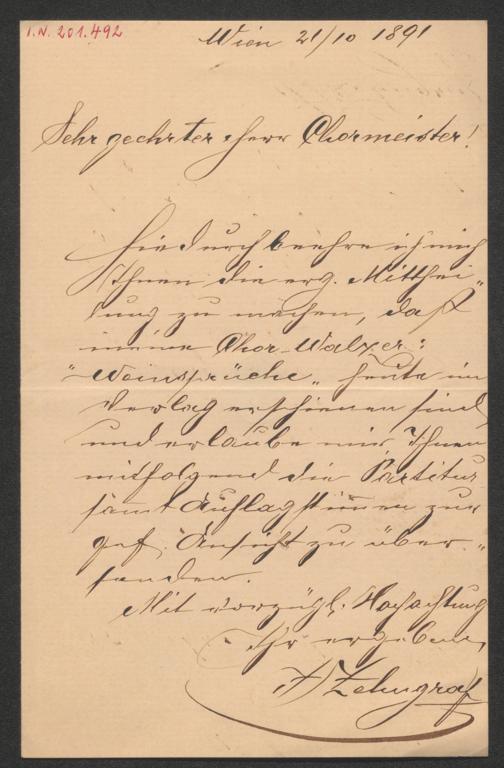 I.N. 201.492
Wien 21/10 1891
Sehr geehrter Herr Chormeister!
Hiedurch beehre ich mich
Ihnen die erg. Mitthei„
lung zu machen, daß
meine Chor-Walzer:
„Weinsprüche„ heute im
Verlag erschienen sind
und erlaube mir Ihnen
mitfolgend die Partitur
sammt Auflagstimmen zur
gef. Ansicht zu über„
senden.
Mit vorzügl. Hochachtung
Ihr ergebener
Zehngraf